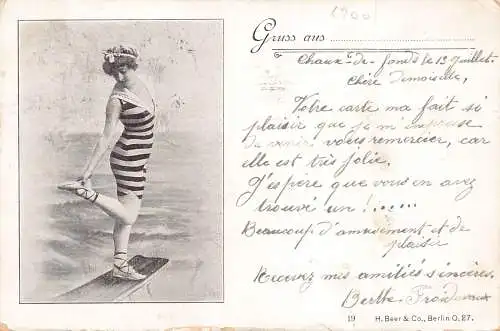 1900
Gruss aus
Chaux-de-fonds le 13 Juillet.
Chère Demoiselle,
Votre carte ma fait si
plaisir que je m'empresse
de venir vous remercier, car
elle est très jolie.
J'espère que vous en avez
trouvé un !......
Beaucoup d'amusement et de
plaisir
Recevez mes amitiés sincères.
Berthe
19 H. Beer & Co., Berlin O. 27.